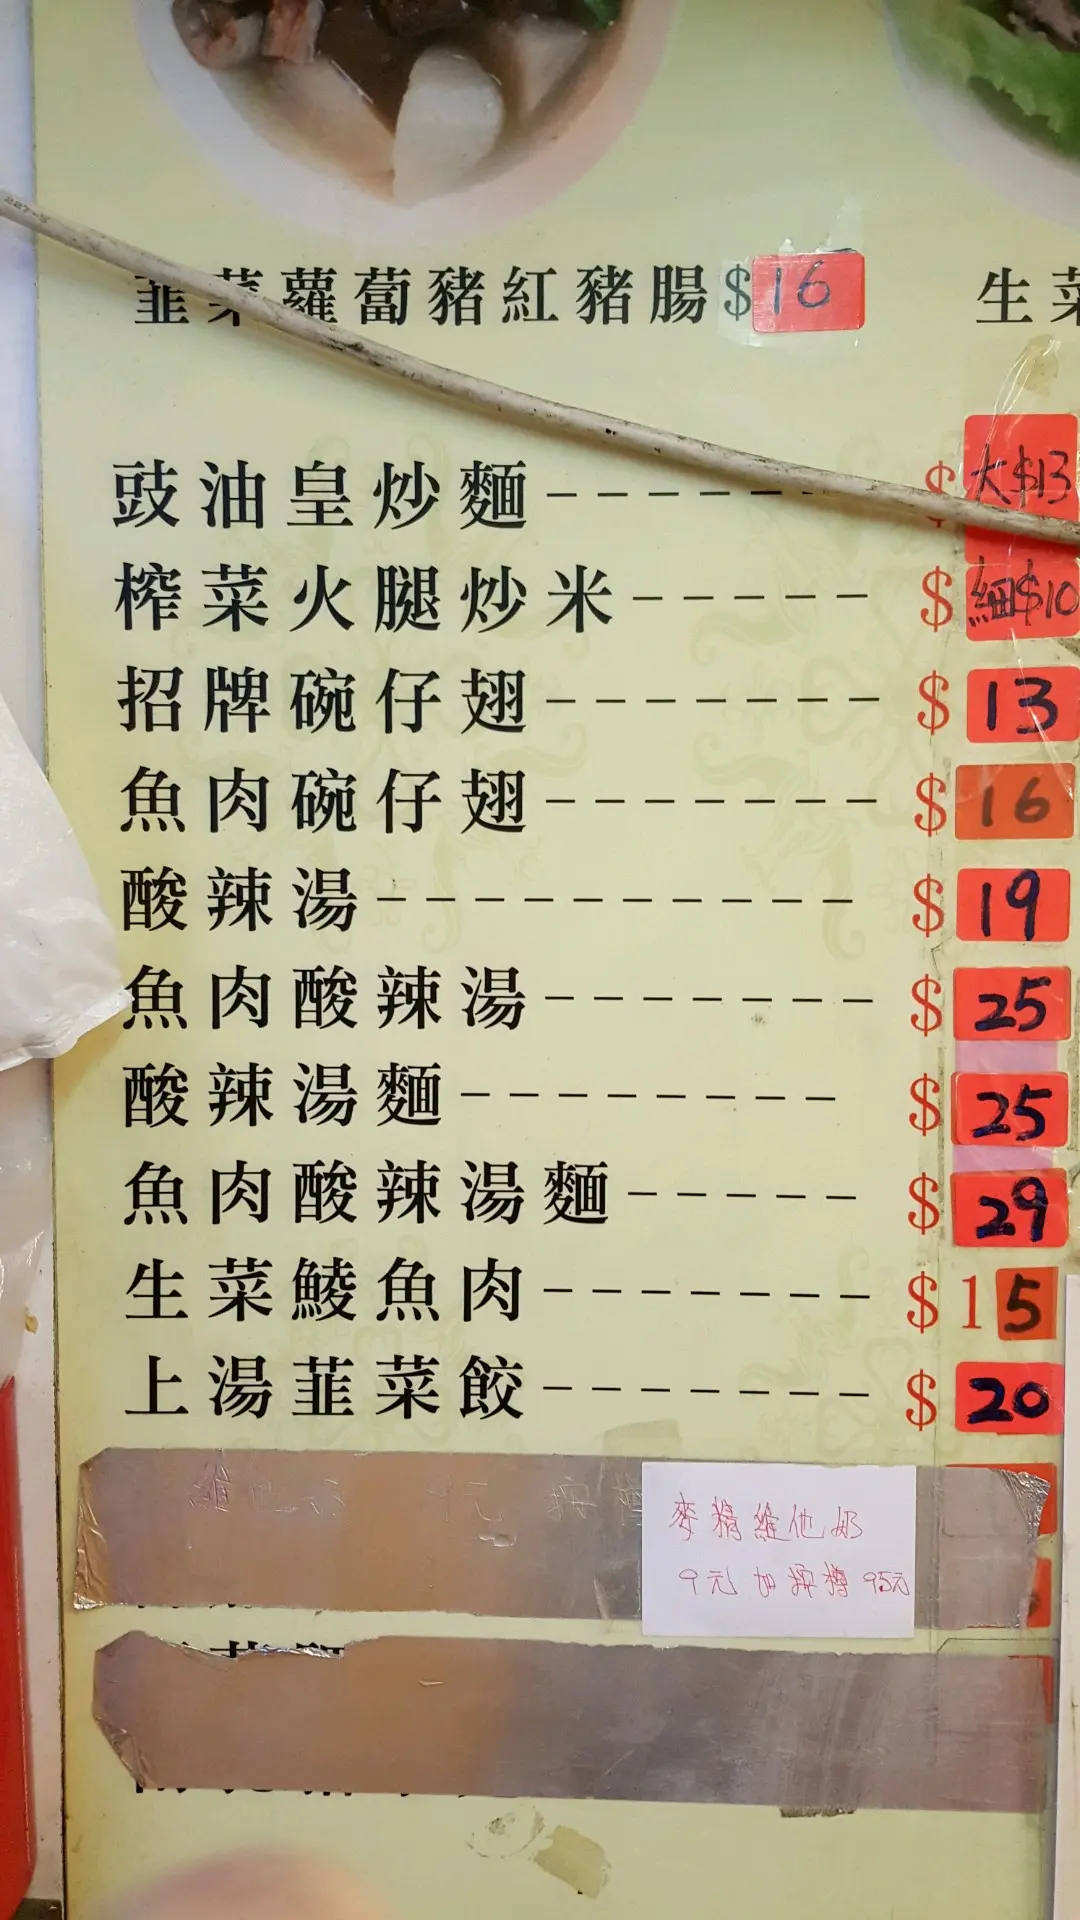 韮菜蘿蔔豬紅豬腸$16
生菜
豉油皇炒麵---------$大$13
榨菜火腿炒米-----$細$10
招牌碗仔翅--------$13
魚肉碗仔翅--------$16
酸辣湯------------$19
魚肉酸辣湯--------$25
酸辣湯麵---------$25
魚肉酸辣湯麵------$29
生菜鯪魚肉--------$15
上湯韮菜餃--------$20
麥精維他奶
9元 加換樽 95元